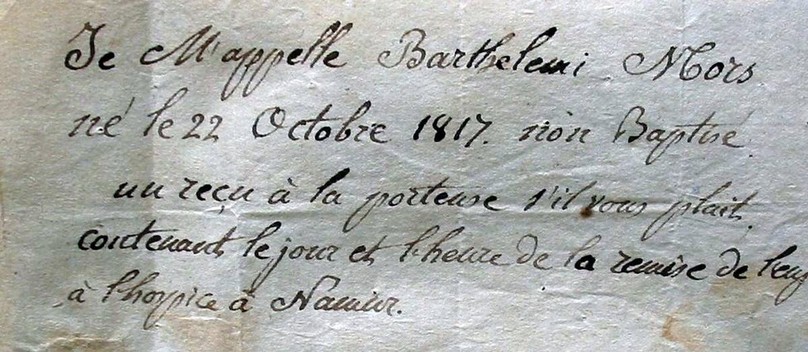 Je M'appelle Barthelemi Mors
né le 22 Octobre 1817. non Baptisé
un reçu à la porteuse s'il vous plait
contenant le jour et l'heure de la remise de
à l'hospice à Namur.